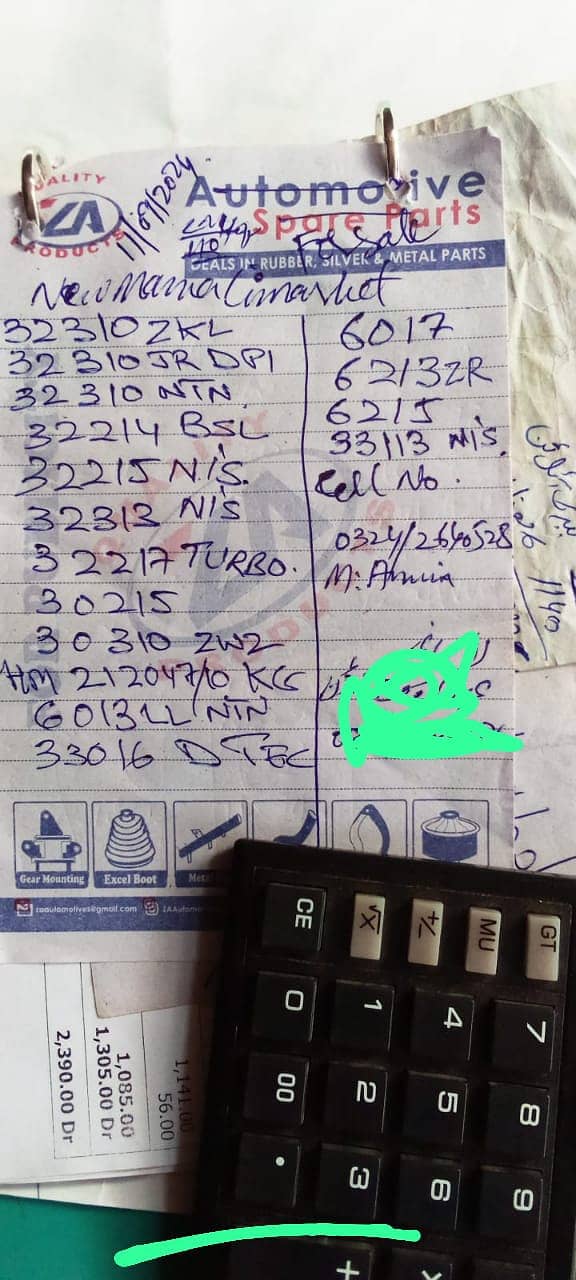 QUALITY
ZA
PRODUCTS
11/09/2024
Automotive
Spare Parts
For Sale
DEALS IN RUBBER, SILVER & METAL PARTS
32310 ZKL
32310 JR DPI
32310 NTN
32214 BSL
32215 NIS.
32313 NIS
32217 TURBO.
30215
30310 ZWZ
HM 212047/10
6013LL NTN
33016 DTEC
6017
6213ZR
6215
33113 NIS.
Cell No.
0324/2640528
M: Amin
Gear Mounting
Excel Boot
zaautomotives@gmail.com
1,141.00
56.00
1,085.00
1,305.00 Dr
2,390.00 Dr
CE √X +/- MU GT
0 1 4 7
00 2 5 8
. 3 6 9
+ ×